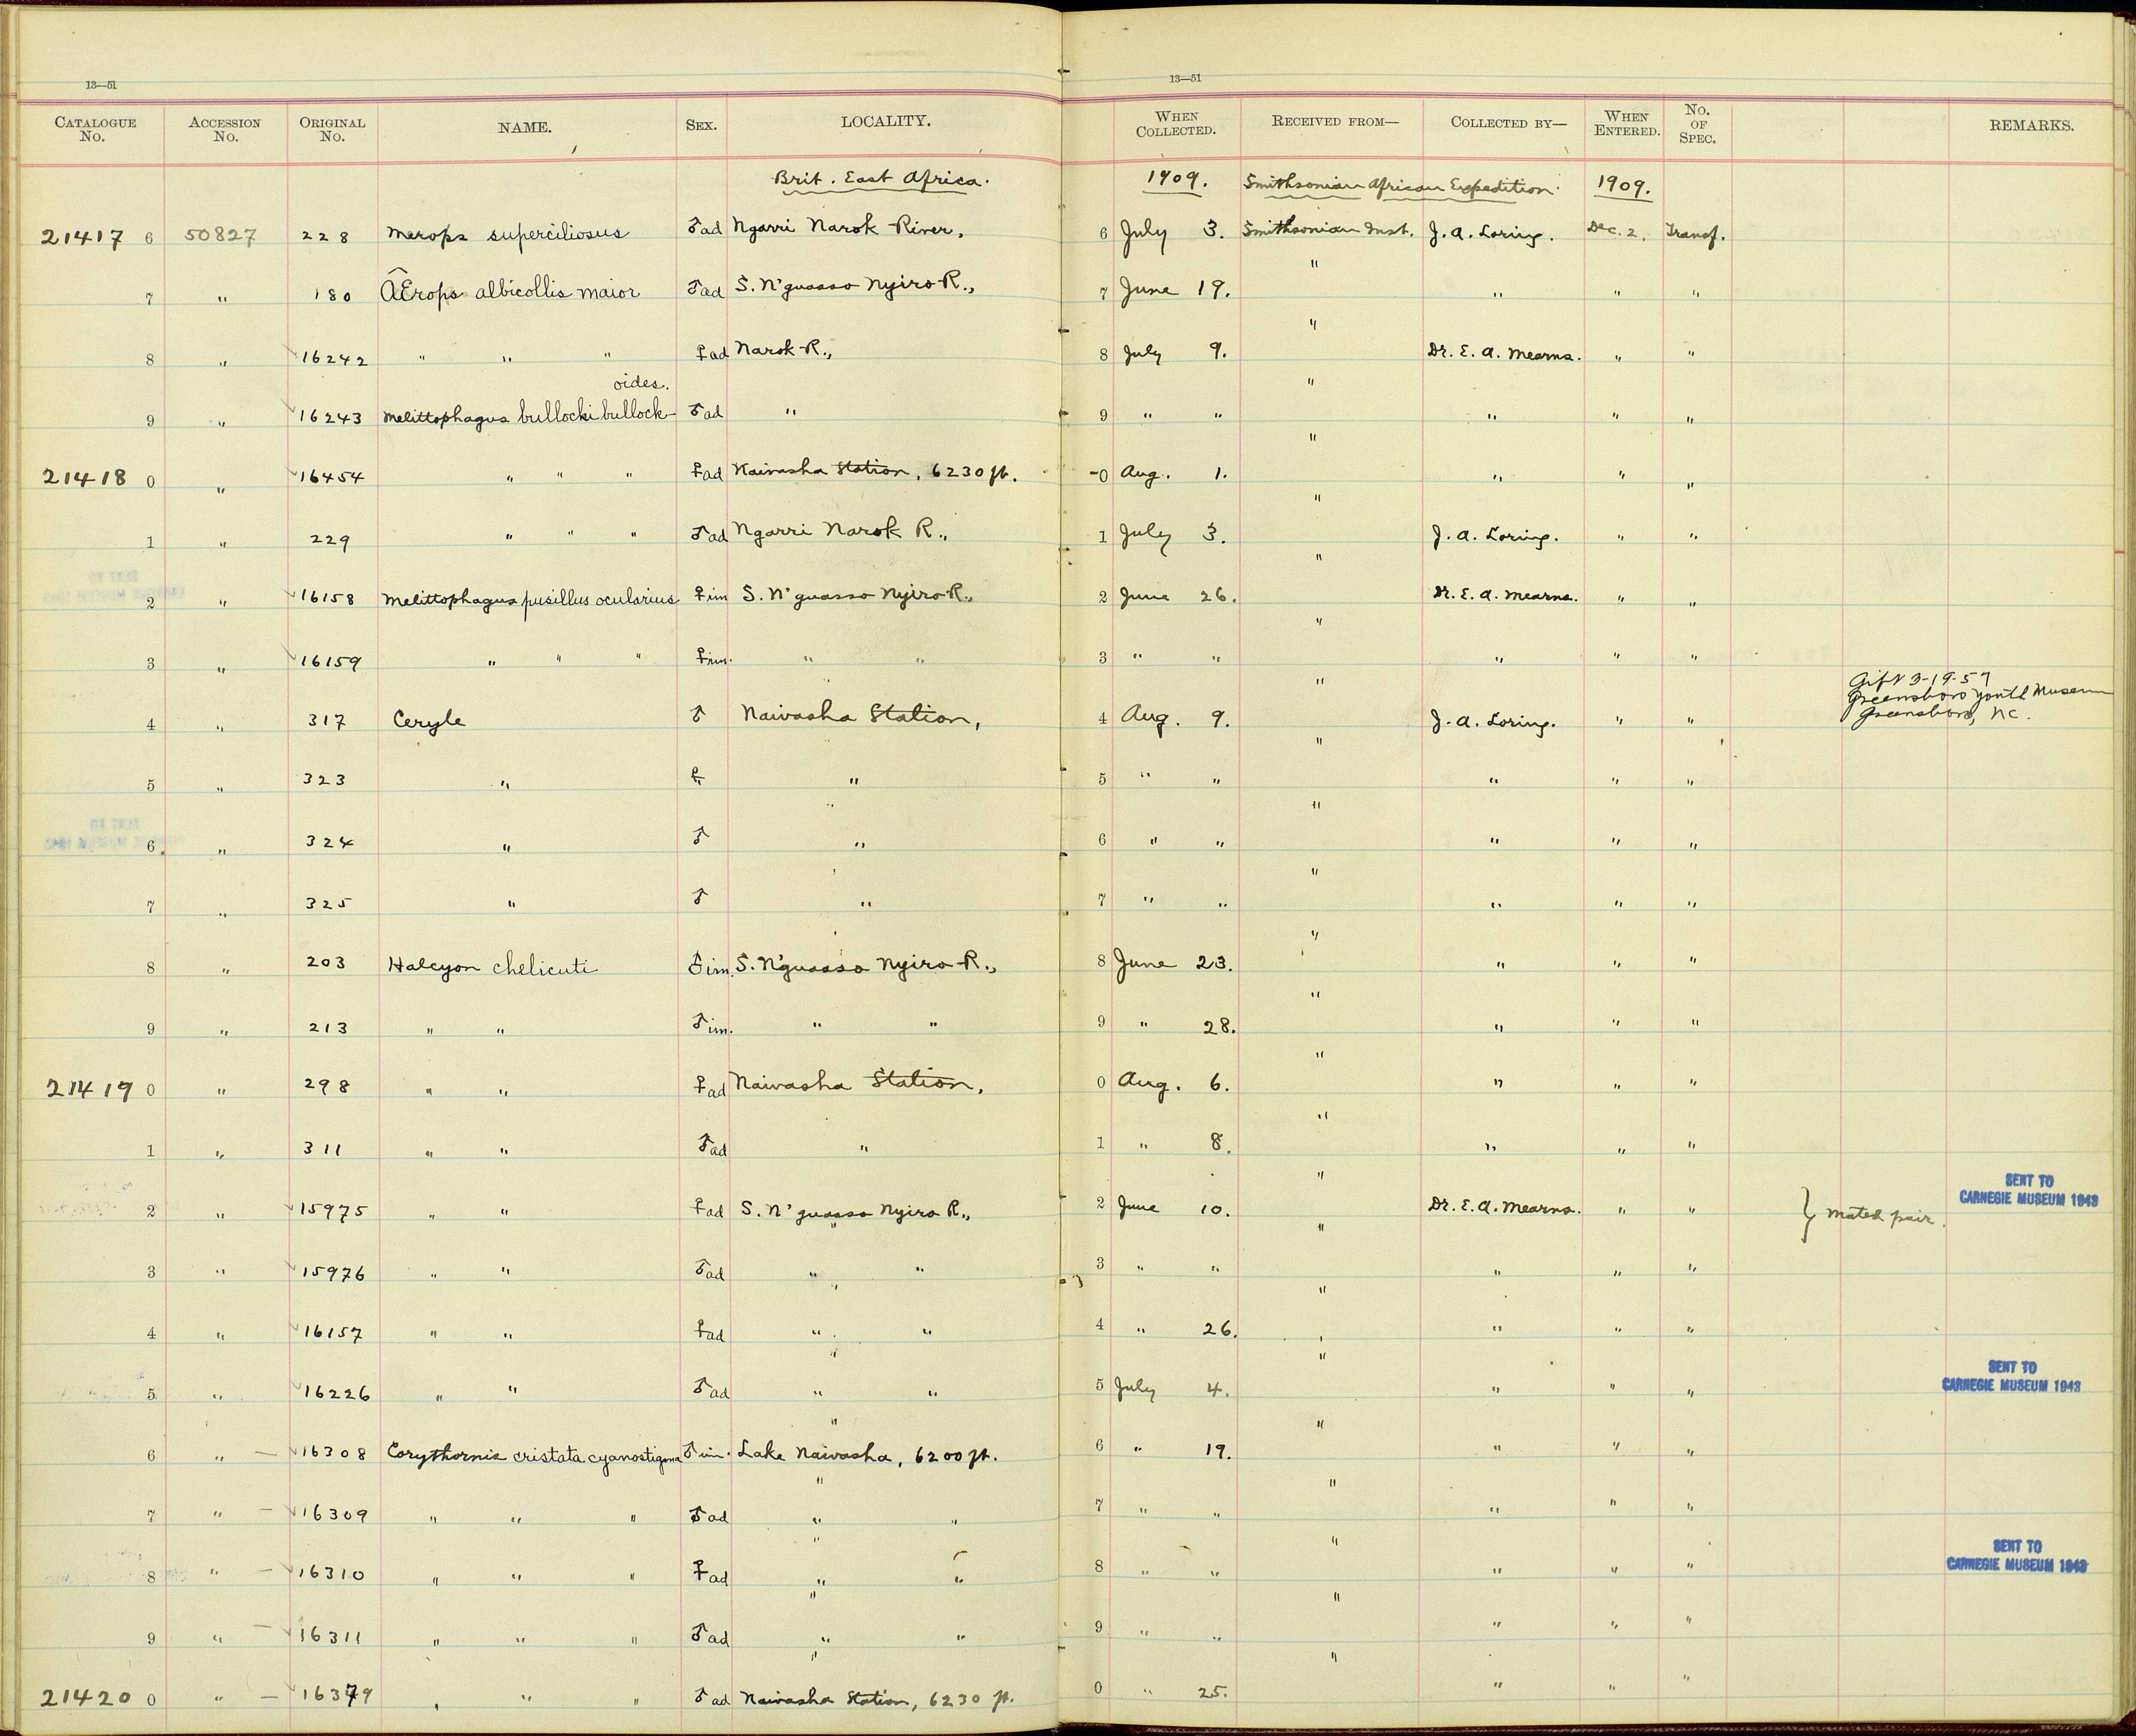 13—51
13—51
CATALOGUE No. ACCESSION No. ORIGINAL No. NAME. SEX. LOCALITY. WHEN COLLECTED. RECEIVED FROM— COLLECTED BY— WHEN ENTERED. No. OF SPEC. REMARKS.
Brit. East Africa. 1909. Smithsonian African Expedition. 1909.
21417 6 50827 228 Merops superciliosus ♂ ad Ngarri Narok River, 6 July 3. Smithsonian Inst. J. A. Loring. Dec. 2. Transf.
7 " 180 AErops albicollis maior ♂ ad S. N'guasso Nyiro R., 7 June 19. " " " "
8 " 16242 " " " ♀ ad Narok R., 8 July 9. " Dr. E. A. Mearns. " "
oides.
9 " 16243 Melittophagus bullocki bullock- ♂ ad " 9 " " " " " "
21418 0 " 16454 " " " ♀ ad Naivasha Station, 6230 ft. 0 Aug. 1. " " " "
1 " 229 " " " ♂ ad Ngarri Narok R., 1 July 3. " J. A. Loring. " "
2 " 16158 Melittophagus pusillus ocularius ♀ im S. N'guasso Nyiro R., 2 June 26. " Dr. E. A. Mearns. " "
3 " 16159 " " " ♀ im. " " 3 " " " " " "
Gift 3-19-57
Greensboro Youth Museum
Greensboro, NC.
4 " 317 Ceryle ♂ Naivasha Station, 4 Aug. 9. " J. A. Loring. " "
5 " 323 " ♀ " 5 " " " " " "
6 " 324 " ♂ " 6 " " " " " "
7 " 325 " ♂ " 7 " " " " " "
8 " 203 Halcyon chelicuti ♂ im. S. N'guasso Nyiro R., 8 June 23. " " " "
9 " 213 " " ♂ im. " " 9 " 28. " " " "
21419 0 " 298 " " ♀ ad Naivasha Station, 0 Aug. 6. " " " "
1 " 311 " " ♂ ad " 1 " 8. " " " "
2 " 15975 " " ♀ ad S. N'guasso Nyiro R., 2 June 10. " Dr. E. A. Mearns. " " } Mated pair. SENT TO CARNEGIE MUSEUM 1943
3 " 15976 " " ♂ ad " " 3 " " " " " "
4 " 16157 " " ♀ ad " " 4 " 26. " " " "
5 " 16226 " " ♂ ad " " 5 July 4. " " " " SENT TO CARNEGIE MUSEUM 1943
6 " — 16308 Corythornis cristata cyanostigma ♂ im. Lake Naivasha, 6200 ft. 6 " 19. " " " "
7 " — 16309 " " " ♂ ad " " 7 " " " " " "
8 " — 16310 " " " ♀ ad " " 8 " " " " " " SENT TO CARNEGIE MUSEUM 1943
9 " — 16311 " " " ♂ ad " " 9 " " " " " "
21420 0 " — 16379 " " " ♂ ad Naivasha Station, 6230 ft. 0 " 25. " " " "